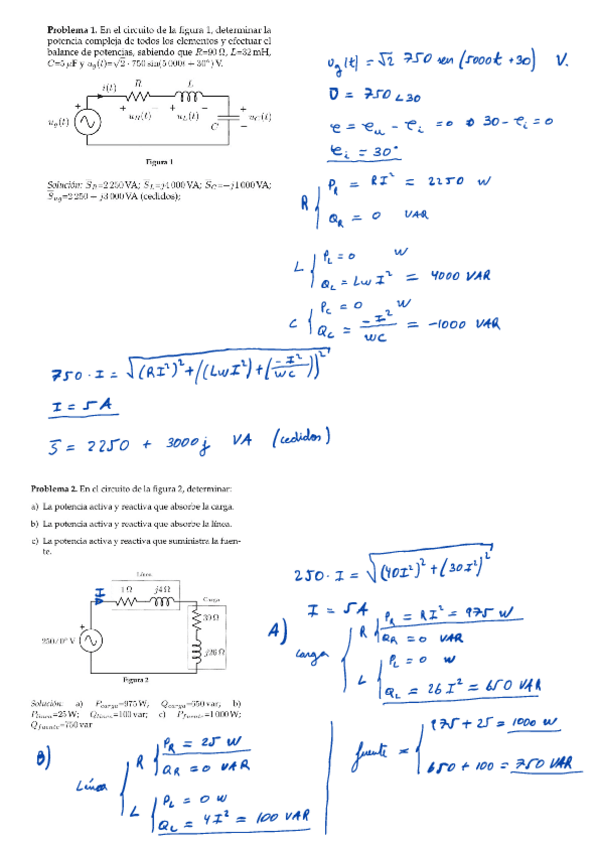 Problema 1. En el circuito de la figura 1, determinar la
potencia compleja de todos los elementos y efectuar el
balance de potencias, sabiendo que R=90 Ω, L=32 mH,
C=5 μF y u_g(t)=√2 · 750 sin(5 000t − 30°) V.
i(t) R L
+ − + −
u_g(t) + u_R(t) u_L(t) C + u_C(t) −
Figura 1
Solución: S̅_R=2 250 VA; S̅_L=j4 000 VA; S̅_C=−j1 000 VA;
S̅_ug=2 250 − j3 000 VA (cedidos);
u_g(t) = √2 750 sen (5000t +30) V.
U = 750∠30
φ = φ_u − φ_i = 0 → 30 − φ_i = 0
φ_i = 30°
R { P_R = RI² = 2250 W
Q_R = 0 VAR
L { P_L = 0 W
Q_L = LωI² = 4000 VAR
C { P_C = 0 W
Q_C = −I²/WC = −1000 VAR
750 · I = √((RI²)² + ((LωI²) + (−I²/WC))²)
I = 5 A
S̅ = 2250 + 3000j VA (cedidos)
Problema 2. En el circuito de la figura 2, determinar:
a) La potencia activa y reactiva que absorbe la carga.
b) La potencia activa y reactiva que absorbe la línea.
c) La potencia activa y reactiva que suministra la fuen-
te.
Línea
I 1 Ω j4 Ω
Carga
39 Ω
250/0° V +
j26 Ω
Figura 2
Solución: a) P_carga=975 W; Q_carga=650 var; b)
P_línea=25 W; Q_línea=100 var; c) P_fuente=1 000 W;
Q_fuente=750 var
250 · I = √((40I²)² + (30I²)²)
I = 5A
A) carga { R { P_R = RI² = 975 W
Q_R = 0 VAR
L { P_L = 0 W
Q_L = 26 I² = 650 VAR
B) Línea { R { P_R = 25 W
Q_R = 0 VAR
L { P_L = 0 W
Q_L = 4I² = 100 VAR
fuente = { 975 + 25 = 1000 W
650 + 100 = 750 VAR